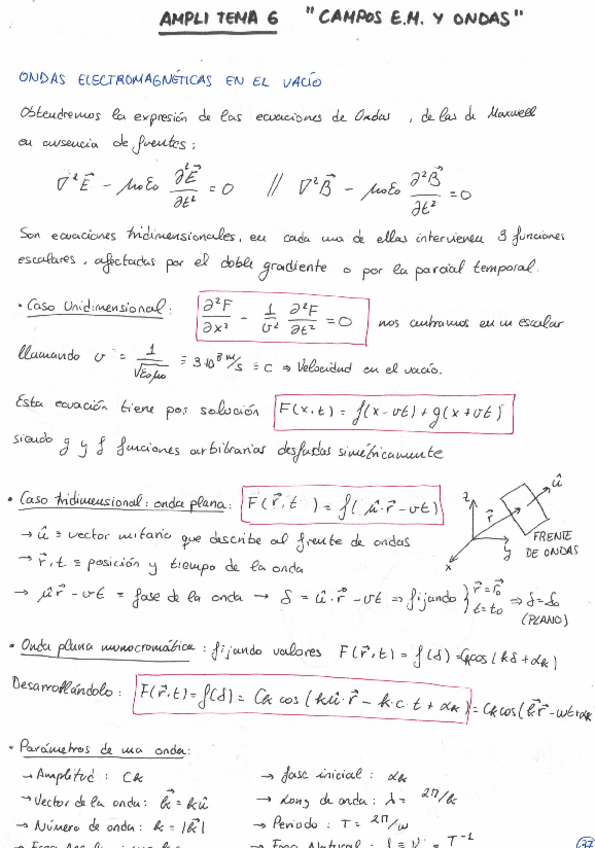 AMPLI TEMA 6 "CAMPOS E.M. Y ONDAS"
ONDAS ELECTROMAGNÉTICAS EN EL VACÍO
Obtendremos la expresión de las ecuaciones de Ondas, de las de Maxwell
en ausencia de fuentes:
∇²E⃗ - μ₀ε₀ ∂²E⃗/∂t² = 0 // ∇²B⃗ - μ₀ε₀ ∂²B⃗/∂t² = 0
Son ecuaciones tridimensionales, en cada una de ellas intervienen 3 funciones
escalares, afectadas por el doble gradiente o por la parcial temporal.
• Caso Unidimensional: ∂²F/∂x² - 1/v² ∂²F/∂t² = 0 nos centramos en un escalar
llamando v = 1/√ε₀μ₀ ≡ 3·10⁸ m/s ≡ c ⇒ Velocidad en el vacío.
Esta ecuación tiene por solución F(x,t) = f(x-vt) + g(x+vt)
siendo g y f funciones arbitrarias desfasdas simétricamente
• Caso tridimensional: onda plana: F(r⃗,t) = f(û·r⃗ - vt)
→ û ≡ vector unitario que describe al frente de ondas
→ r⃗, t ≡ posición y tiempo de la onda
z û r⃗ y x
FRENTE
DE ONDAS
→ ûr⃗ - vt = fase de la onda → δ = û·r⃗ - vt ⇒ fijando } r⃗=r⃗₀ t=t₀ ⇒ δ=δ₀
(PLANO)
• Onda plana monocromática: fijando valores F(r⃗,t) = f(δ) = Cₖcos(kδ + αₖ)
Desarrollándolo: F(r⃗,t) = f(δ) = Cₖ cos(kû·r⃗ - k·c·t + αₖ) = Cₖcos(k⃗r⃗ - wt + αₖ
• Parámetros de una onda:
→ Amplitud: Cₖ → fase inicial: αₖ
→ Vector de la onda: k⃗ = kû → Long de onda: λ = 2π/k
→ Número de onda: k = |k⃗| → Periodo: T = 2π/w
37